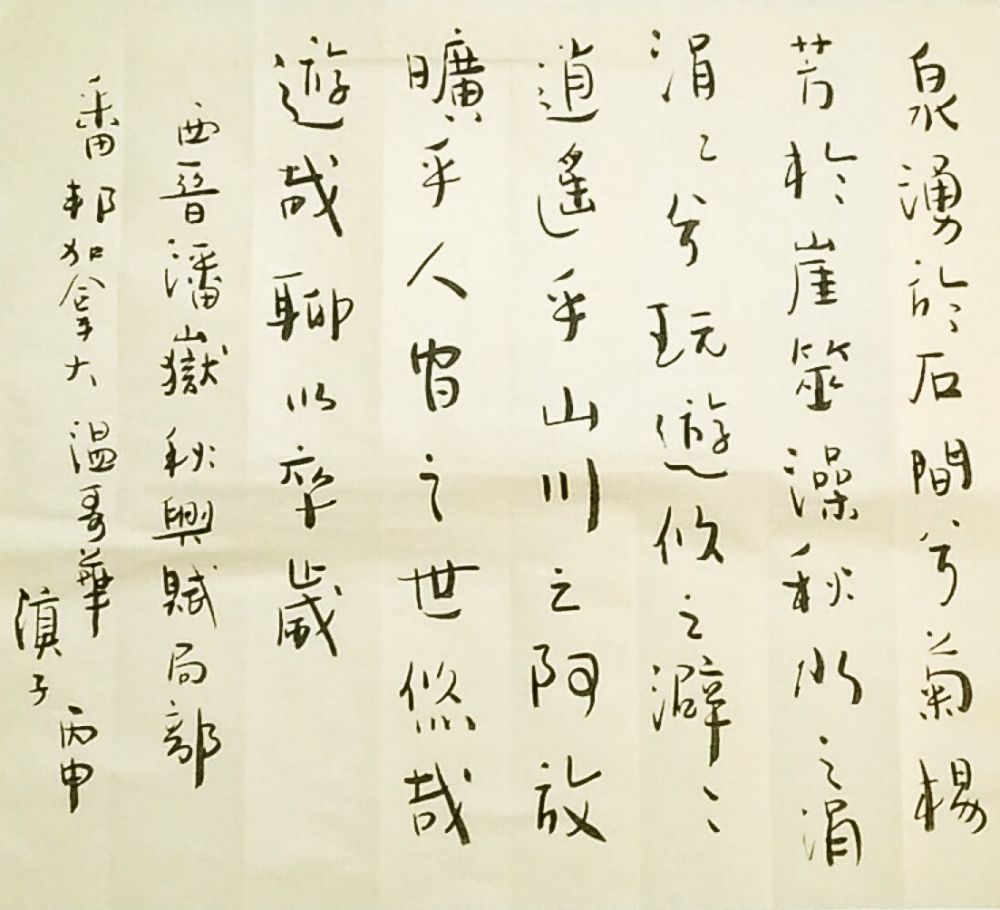 泉湧於石間兮菊楊
芳於崖筮澡秋水之涓
涓〻兮玩遊攸之澼〻
逍遙乎山川之阿放
曠乎人間之世悠哉
遊哉聊以卒歲
西晉潘嶽秋興賦局部
番邦加拿大温哥華
滇子 丙申